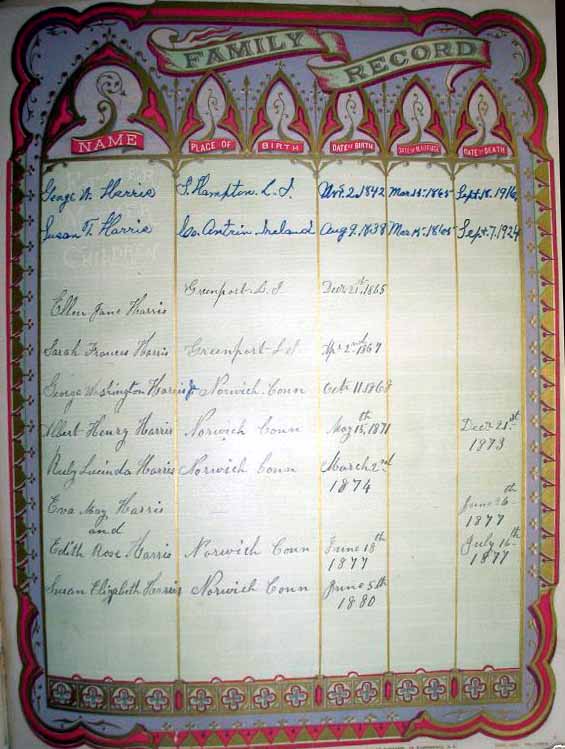 FAMILY RECORD
NAME PLACE OF BIRTH DATE OF BIRTH DATE OF MARRIAGE DATE OF DEATH
George W. Harris S. Hampton. L. I. Nov. 2. 1842 Mar 15th 1865 Sept. 18. 1916
Susan T. Harris Co. Antrim Ireland Aug 9. 1838 Mar 15th 1865 Sept. 7. 1924
CHILDREN
Ellen Jane Harris Greenport. L. I Decr 21st 1865
Sarah Frances Harris Greenport L. I Apr 2nd 1867
George Washington Harris Jr Norwich Conn Octr 11. 1868
Albert Henry Harris Norwich Conn May 15th, 1871 Decr 21st
1873
Ruby Lucinda Harris Norwich Conn March 2nd
1874
Eva May Harris June 26th
1877
and
Edith Rose Harris Norwich Conn June 18th July 16th
1877 1877
Susan Elizabeth Harris Norwich Conn June 5th
1880